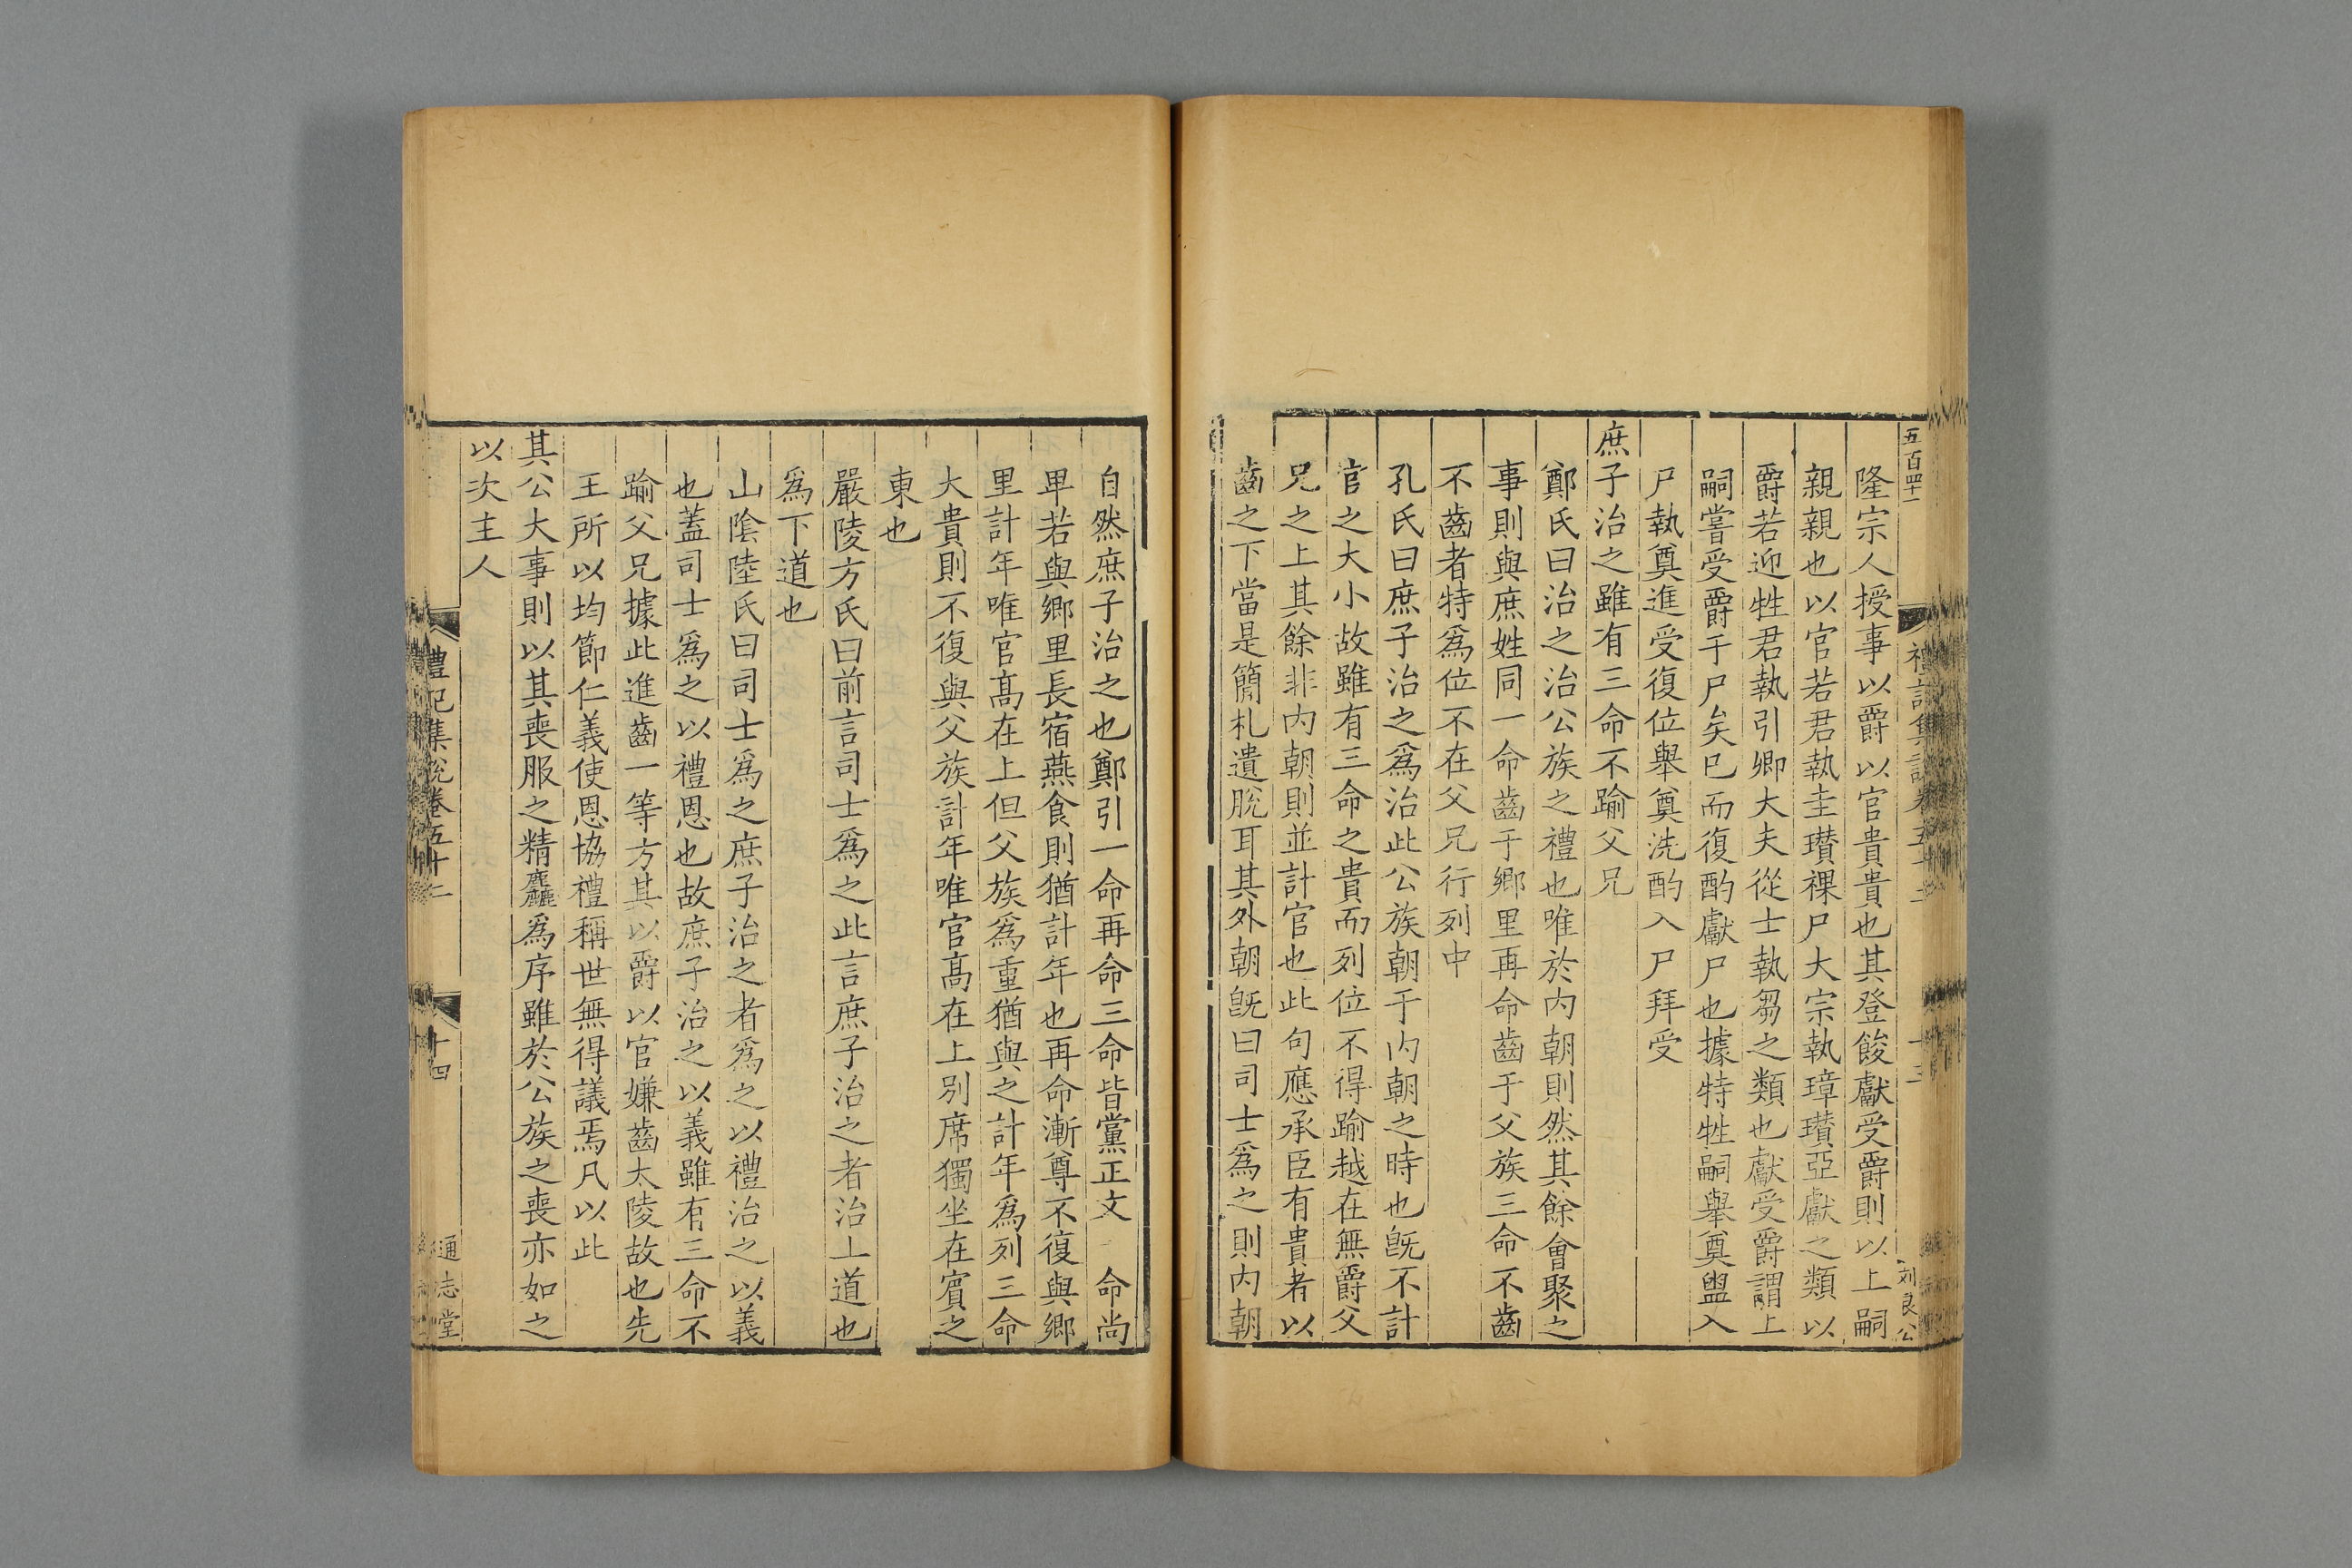 五百四十一
隆宗人授事以爵以官貴貴也其登餕獻受爵則以上嗣
親親也以官若君執圭瓚祼尸大宗執璋瓚亞獻之類以
爵若迎牲君執引卿大夫從士執芻之類也獻受爵謂上
嗣嘗受爵于尸矣已而復酌獻尸也據特牲嗣舉奠盥入
尸執奠進受復位舉奠洗酌入尸拜受
庶子治之雖有三命不踰父兄
鄭氏曰治之治公族之禮也唯於内朝則然其餘會聚之
事則與庶姓同一命齒于鄉里再命齒于父族三命不齒
不齒者特爲位不在父兄行列中
孔氏曰庶子治之爲治此公族朝于内朝之時也旣不計
官之大小故雖有三命之貴而列位不得踰越在無爵父
兄之上其餘非内朝則並計官也此句應承臣有貴者以
齒之下當是簡札遺脫耳其外朝旣曰司士爲之則内朝
自然庶子治之也鄭引一命再命三命皆黨正文 命尚
卑若與鄉里長宿燕食則猶計年也再命漸尊不復與鄉
里計年唯官高在上但父族爲重猶與之計年爲列三命
大貴則不復與父族計年唯官高在上別席獨坐在賔之
東也
嚴陵方氏曰前言司士爲之此言庶子治之者治上道也
爲下道也
山陰陸氏曰司士爲之庶子治之者爲之以禮治之以義
也蓋司士爲之以禮恩也故庶子治之以義雖有三命不
踰父兄據此進齒一等方其以爵以官嫌齒太陵故也先
王所以均節仁義使恩協禮稱世無得議焉凡以此
其公大事則以其喪服之精麤爲序雖於公族之喪亦如之
以次主人
禮記集說卷五十二
十四
通志堂